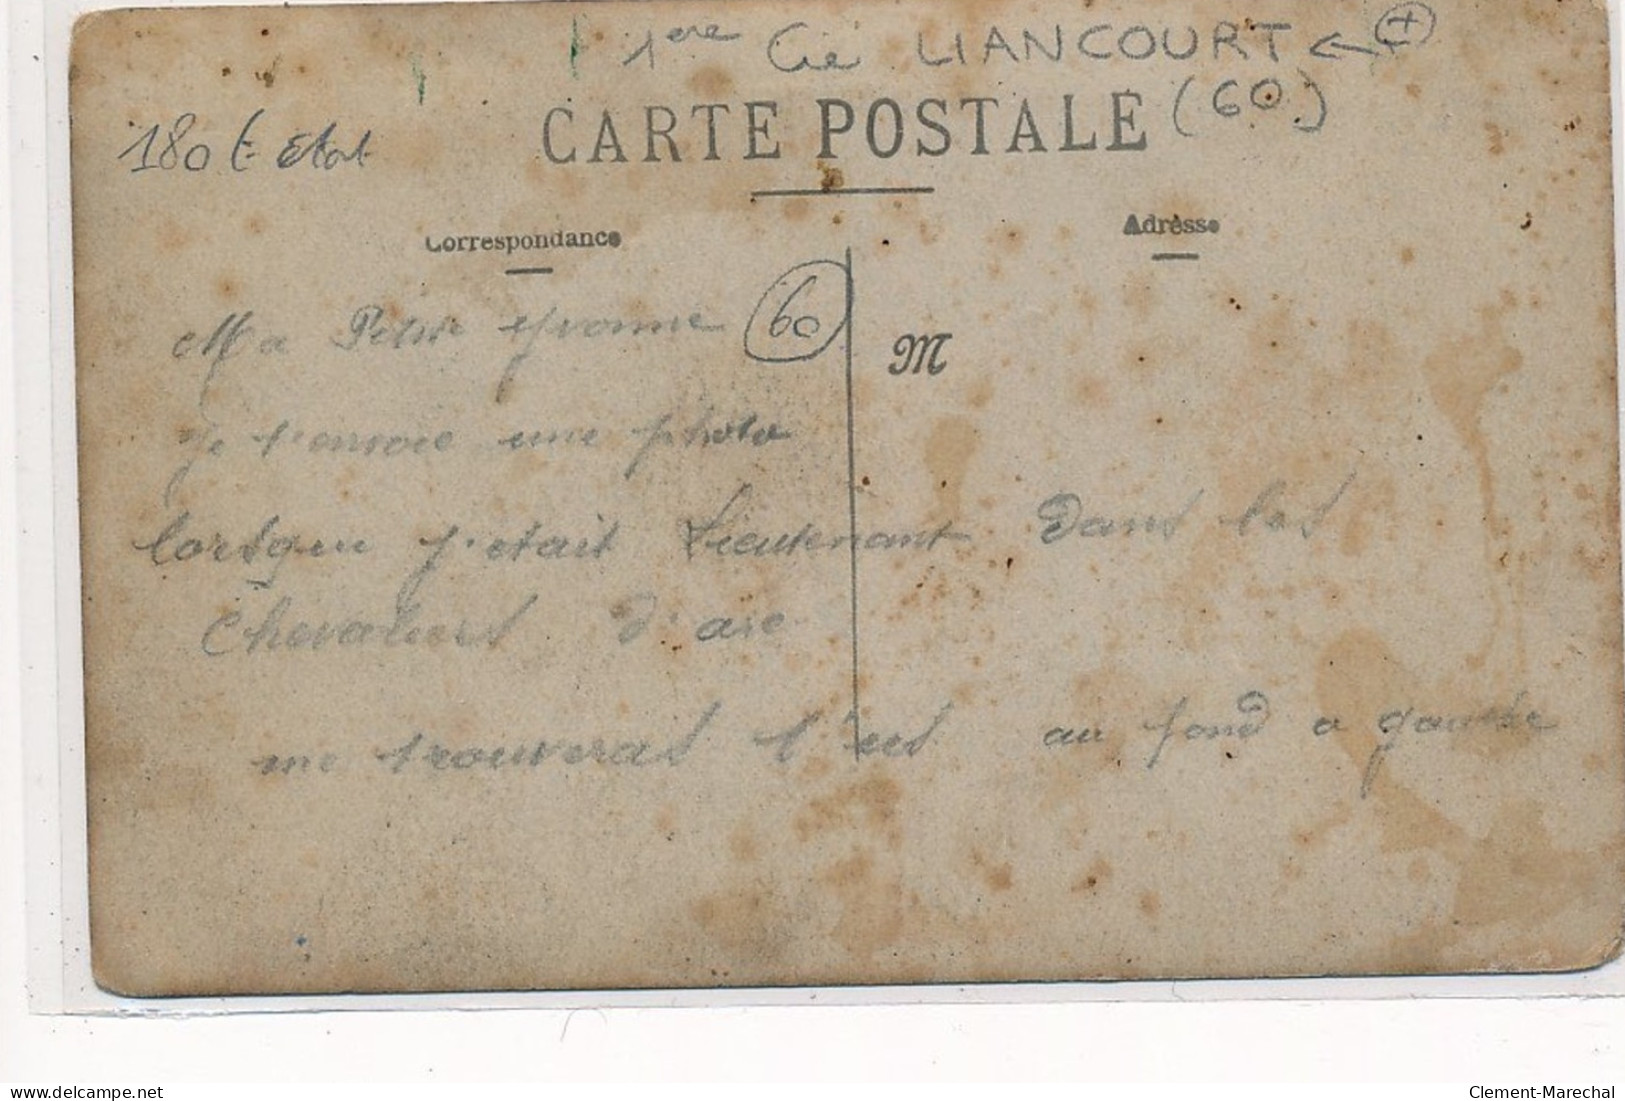 1ere Cie LIANCOURT ← +
180 € Etat
CARTE POSTALE (60)
Correspondance
Adresse
Ma Petite Yvonne
60
M
je t'envoie une photo
lorsque j'etait Lieutenant dans les
Chevaliers d'arc
me trouveras l'est au fond a gauche
www.delcampe.net
Clement-Marechal